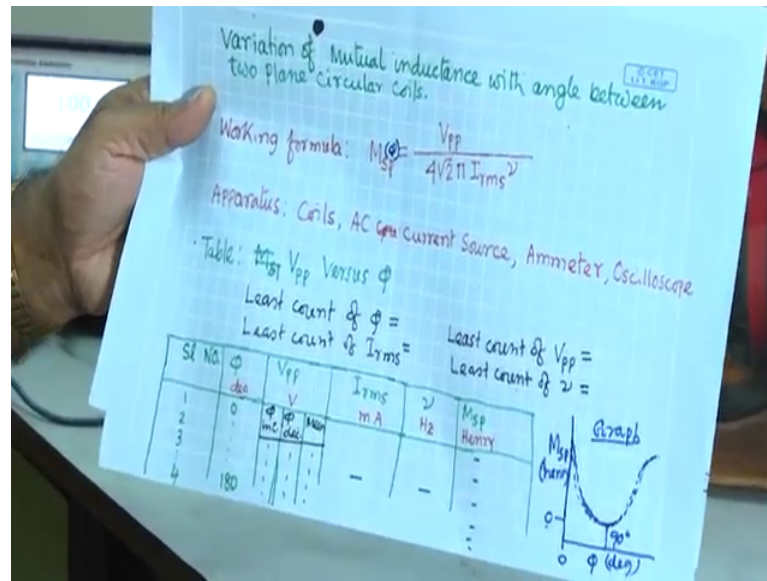 Variation of Mutual inductance with angle between
two plane Circular Coils.
© CET
I.I.T. KGP
Working formula: Msp(φ) = Vpp / 4√2 π Irms ν
Apparatus: Coils, AC Current Source, Ammeter, Oscilloscope
Table: Vpp Versus φ
Least count of φ =
Least count of Vpp =
Least count of Irms =
Least count of ν =
Sl No. φ Vpp Irms ν Msp
deg V mA Hz Henry
φ inc φ dec Mean
1 0
2
3
4 180
Graph
Msp
(henry)
0
90°
0 φ (deg)